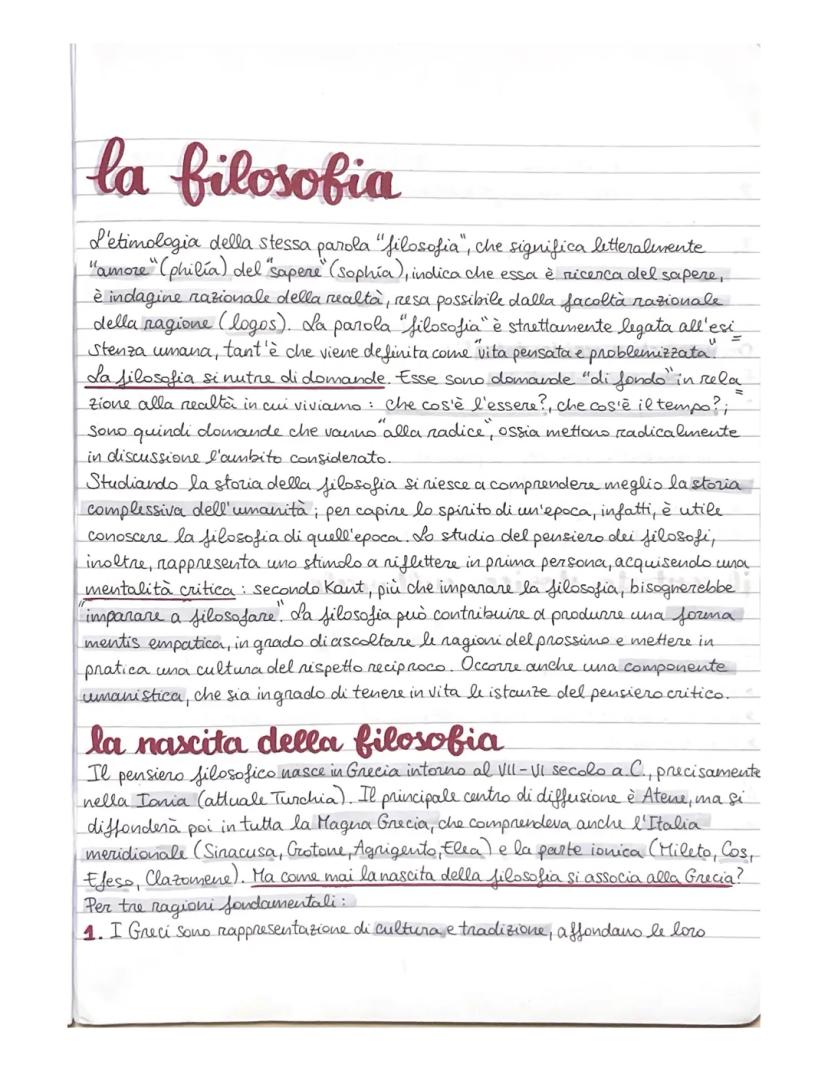 la filosofia
L'etimologia della stessa parola "filosofia", che significa letteralmente
"amore" (philía) del "sapere" (sophía), indica che essa è ricerca del sapere,
è indagine razionale della realtà, resa possibile dalla facoltà razionale
della ragione (logos). La parola "filosofia" è strettamente legata all'esi=
stenza umana, tant'è che viene definita come "vita pensata e problemizzata".
La filosofia si nutre di domande. Esse sono domande "di fondo" in rela=
zione alla realtà in cui viviamo: che cos'è l'essere?, che cos'è il tempo?;
sono quindi domande che vanno "alla radice", ossia mettono radicalmente
in discussione l'ambito considerato.
Studiando la storia della filosofia si riesce a comprendere meglio la storia
complessiva dell'umanità; per capire lo spirito di un'epoca, infatti, è utile
conoscere la filosofia di quell'epoca. Lo studio del pensiero dei filosofi,
inoltre, rappresenta uno stimolo a riflettere in prima persona, acquisendo una
mentalità critica: secondo Kant, più che imparare la filosofia, bisognerebbe
"imparare a filosofare". La filosofia può contribuire a produrre una forma
mentis empatica, in grado di ascoltare le ragioni del prossimo e mettere in
pratica una cultura del rispetto reciproco. Occorre anche una componente
umanistica, che sia in grado di tenere in vita le istanze del pensiero critico.
la nascita della filosofia
Il pensiero filosofico nasce in Grecia intorno al VII-VI secolo a.C., precisamente
nella Ionia (attuale Turchia). Il principale centro di diffusione è Atene, ma si
diffonderà poi in tutta la Magna Grecia, che comprendeva anche l'Italia
meridionale (Siracusa, Crotone, Agrigento, Elea) e la parte ionica (Mileto, Cos,
Efeso, Clazomene). Ma come mai la nascita della filosofia si associa alla Grecia?
Per tre ragioni fondamentali:
1. I Greci sono rappresentazione di cultura e tradizione, affondano le loro